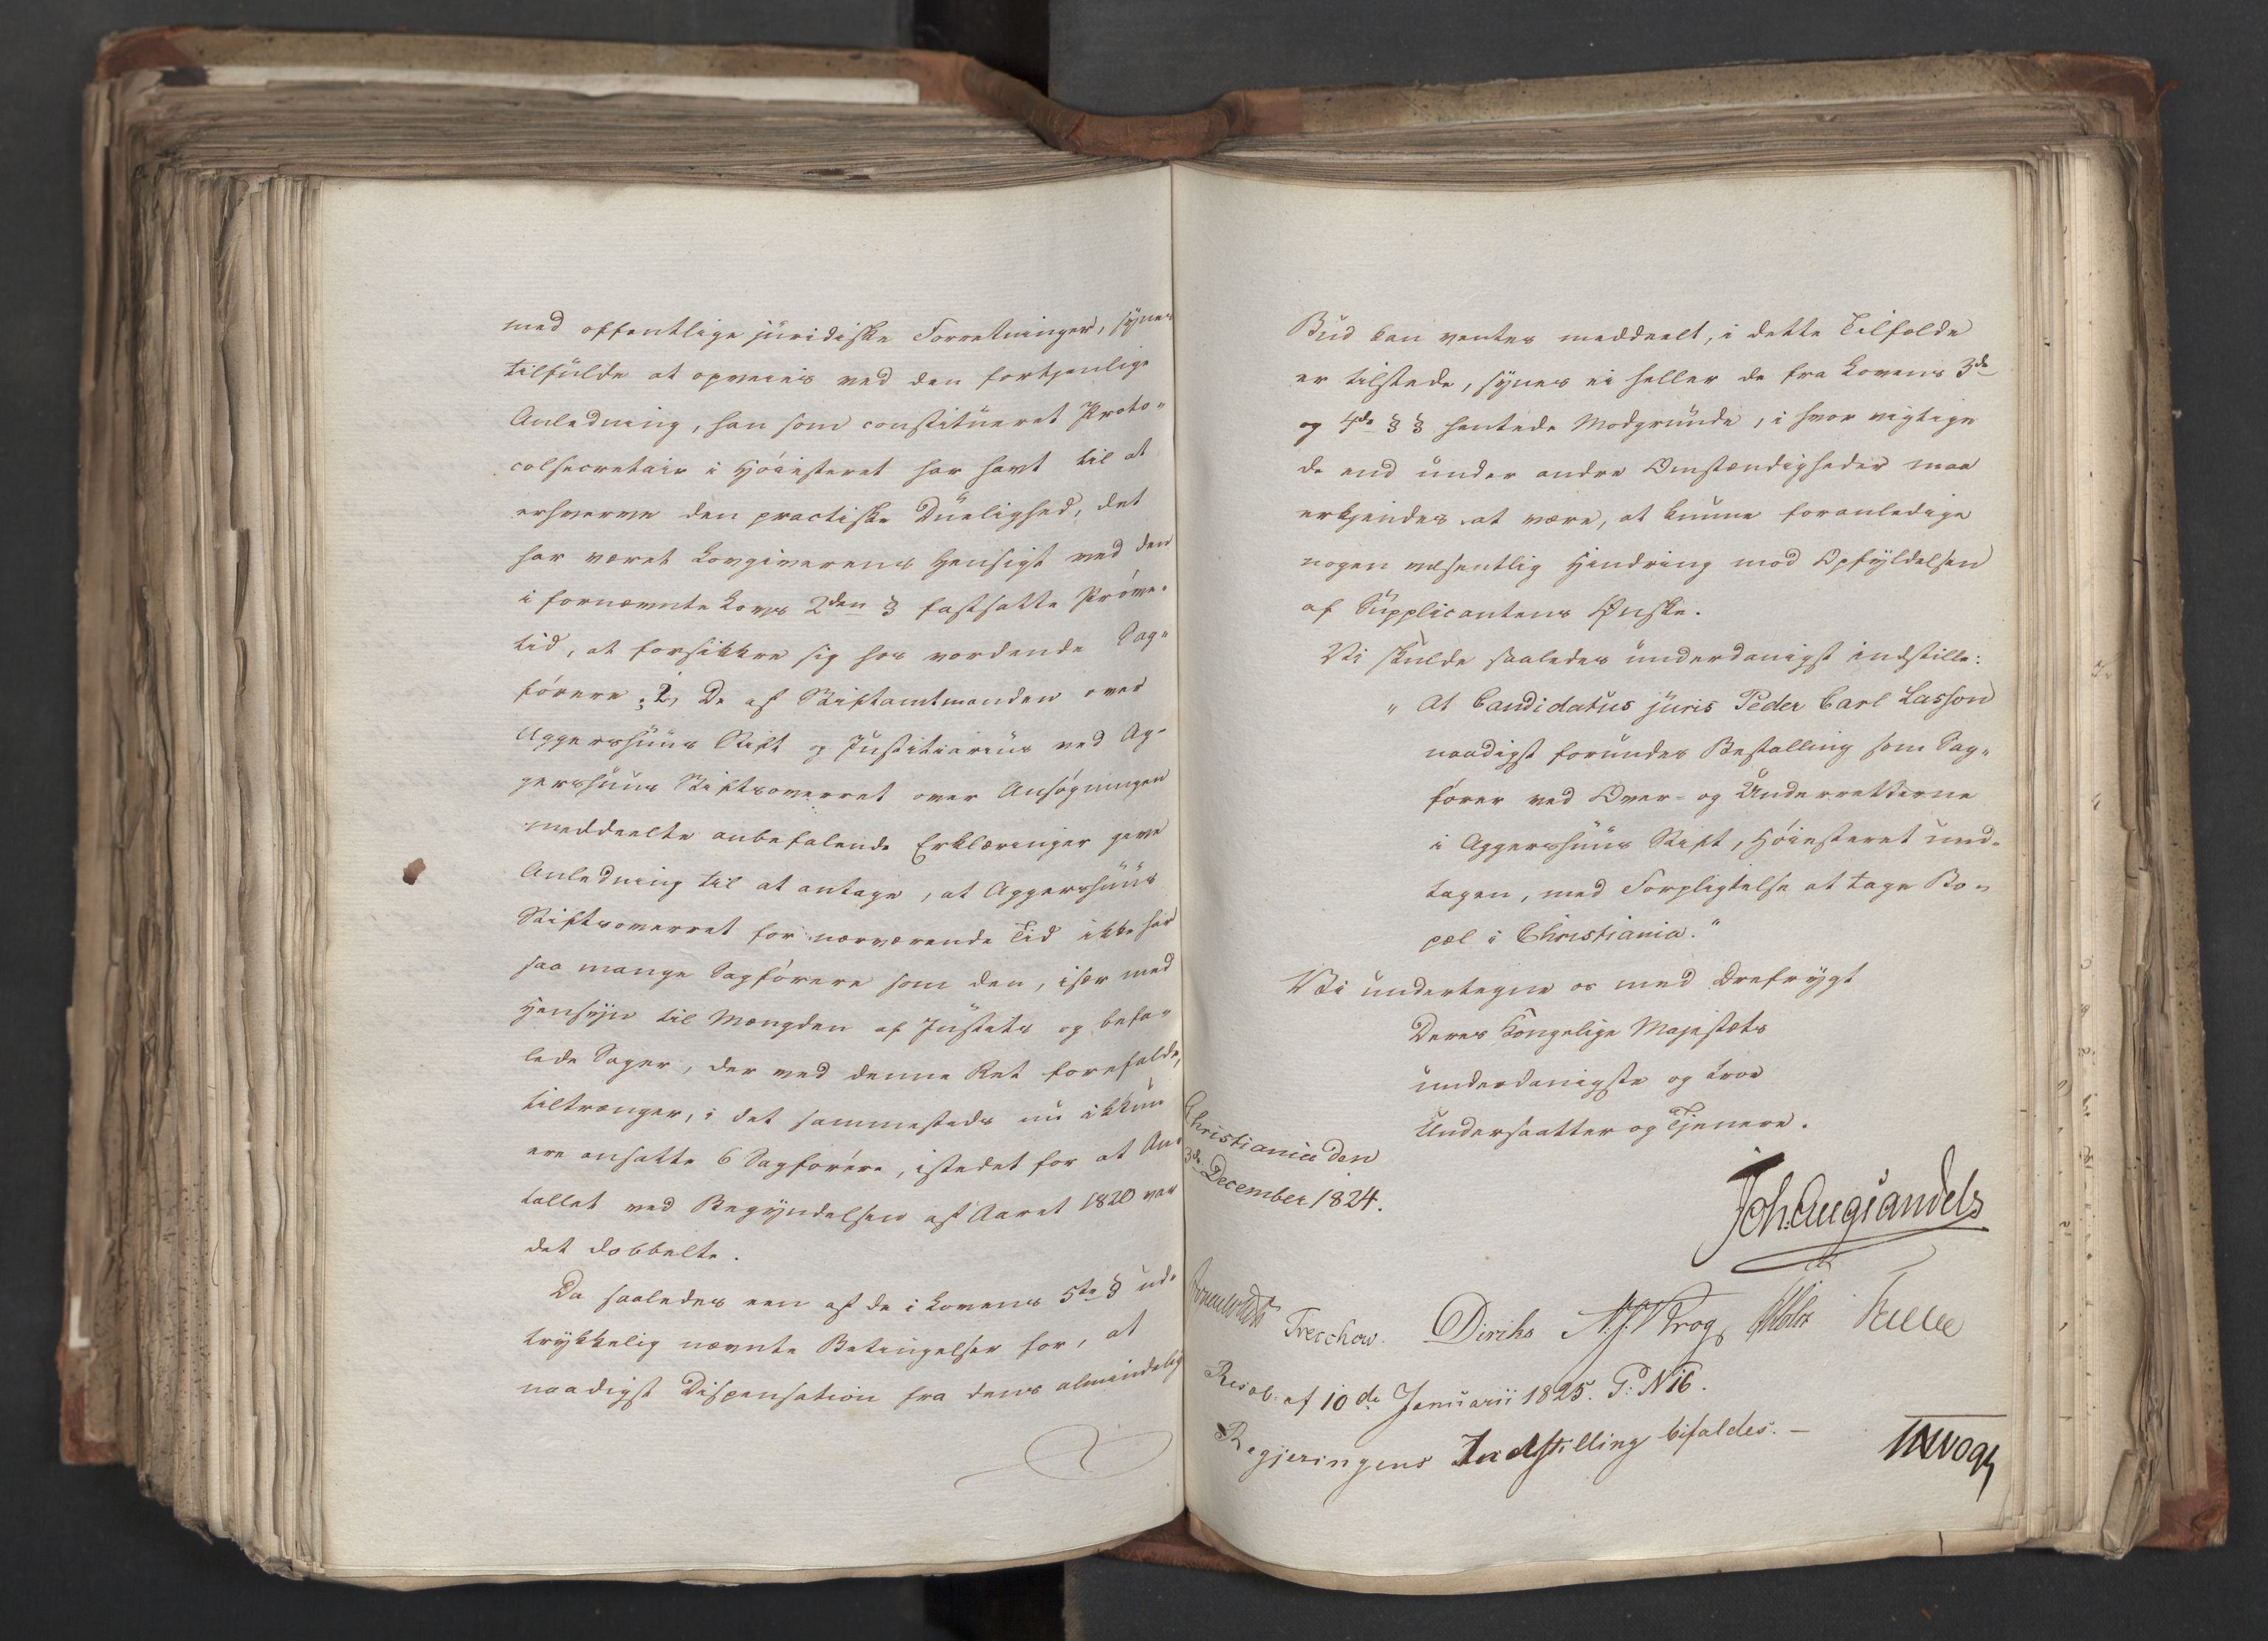 med offentlige juridiske Forretninger, synes
tilfulde at opveies ved den fortjenlige
Anledning, han som constitueret Proto-
colsecretair i Høiesteret har havt til at
erhverve den practiske Duelighed, det
har været Lovgiverens Hensigt ved den
i fornævnte Lovs 2den § fastsatte Prøve-
tid, at forsikkre sig hos vordende Sag-
førere; 2, De af Stiftamtmanden over
Aggershuus Stift og Justitiarius ved Ag-
gershuus Stiftsoverret over Ansøgningen
meddeelte anbefalende Erklæringer give
Anledning til at antage, at Aggershuus
Stiftsoverret for nærværende Tid ikke har
saa mange Sagførere som den, især med
Hensyn til Mængden af Justits og befa-
lede Sager, der ved denne Ret forefalde,
tiltrænger, i det sammesteds nu ikkun
ere ansatte 6 Sagførere, istedet for at An-
tallet ved Begyndelsen af Aaret 1820 var
det dobbelte.
Da saaledes een af de i Lovens 5te § ud-
trykkelig nævnte Betingelser for, at
naadigst Dispensation fra dens almindelig
Bud kan ventes meddeelt, i dette Tilfælde
er tilstede, synes ei heller de fra Lovens 3de
og 4de §§ hentede Modgrunde, i hvor vigtige
de end under andre Omstændigheder maa
erkjendes at være, at kunne foranledige
nogen væsentlig Hindring mod Opfyldelsen
af Supplicantens Ønske.
Vi skulde saaledes underdanigst indstille:
"At Candidatus juris Peder Carl Lasson
naadigst forundes Bestalling som Sag-
fører ved Over- og Underretterne
i Aggershuus Stift, Høiesteret und-
tagen, med Forpligtelse at tage Bo-
pæl i Christiania."
Vi undertegne os med Ærefrygt
Deres Kongelige Majestæts
underdanigste og troe
Undersaatter og Tjenere.
Christiania den
3de December 1824.
Joh. Aug Sandels
Sommerhielm Treschow. Diriks Krog Fasting
Resol. af 10de Januarii 1825. P: N 16.
Regjeringens Indstilling bifaldes. —